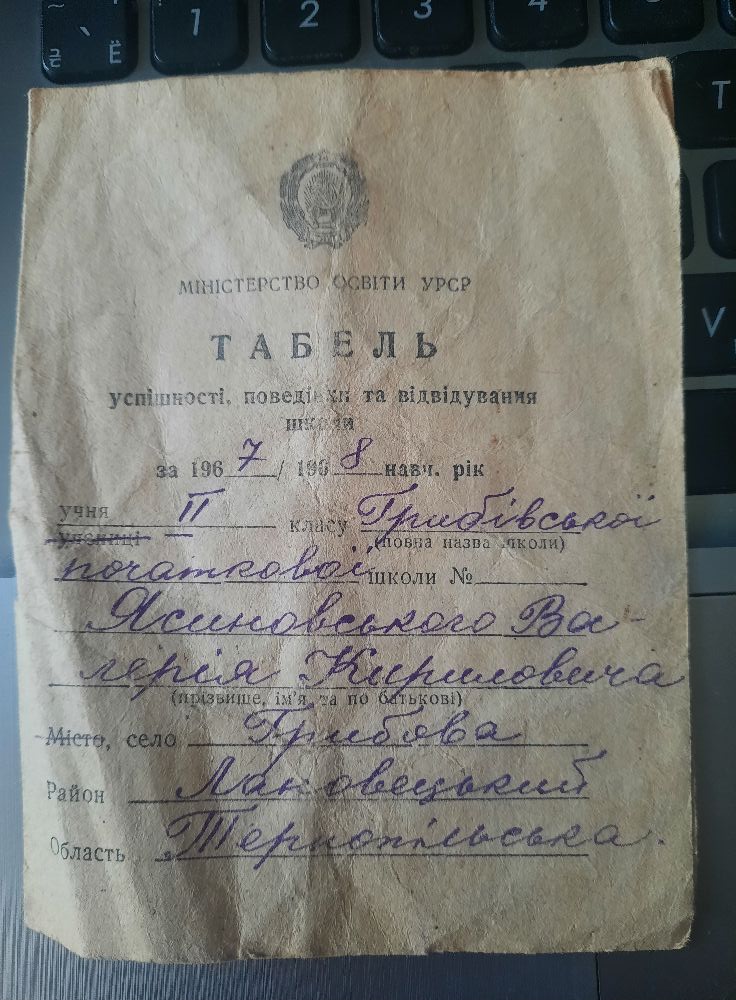 1
2
3
4
Ё
T
V
МІНІСТЕРСТВО ОСВІТИ УРСР
ТАБЕЛЬ
успішності, поведінки та відвідування
школи
за 1967/1968 навч. рік
учня II класу Грибівської
учениці (повна назва школи)
початкової школи №
Ясиновського Ва-
лерія Кириловича
(прізвище, ім'я та по батькові)
Місто, село Грибова
Район Лановецький
Область Тернопільська.